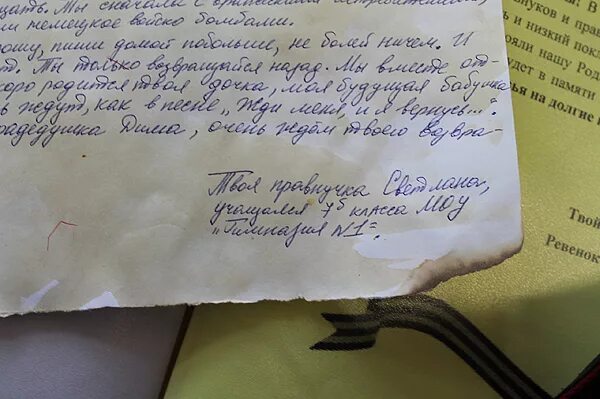 щать. Мы сначала с британскими истребителями,
ли немецкое войско бомбами.
рошу, пиши домой побольше, не болей ничем. И
т. Ты только возвращайся назад. Мы вместе от-
коро родится твоя дочка, моя будущая бабушка
ь ждут, как в песне „Жди меня, и я вернусь...".
радедушка Дима, очень ждём твоего возвра-
Твоя правнучка Светлана,
учащаяся 7б класса МОУ
„Гимназия №1".
нуков и прав
ь и низкий покл
ояли нашу Род
удет в памяти
ья на долгие г
Твой
Ревенок